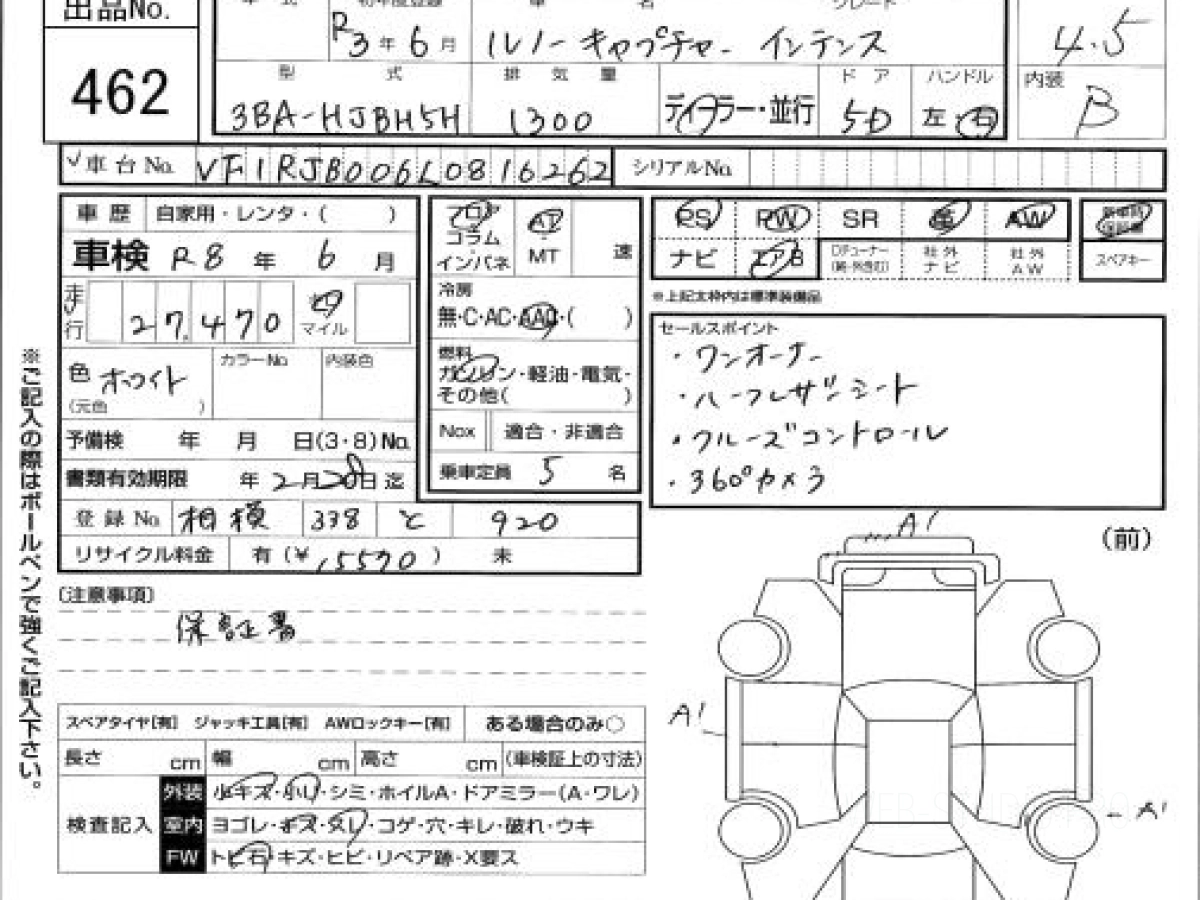 出品No.
462
年式 初年度登録 車名 グレード
R3年6月 ルノーキャプチャー インテンス
4.5
型式 排気量 ドア ハンドル 内装
3BA-HJBH5H 1300 ディーラー・並行 5D 左・右 B
√車台No. VF1RJB006L0816262 シリアルNo.
車歴 自家用・レンタ・( )
車検 R8年 6月
走行 27,470 キロ マイル
色 ホワイト (元色 ) カラーNo. 内装色
予備検 年 月 日(3・8)No.
書類有効期限 年2月28日迄
登録No. 相模 338 と 920
リサイクル料金 有(¥ 15570 ) 未
フロア・コラム・インパネ
AT・MT 速
冷房
無・C・AC・AAC・( )
燃料
ガソリン・軽油・電気・
その他( )
Nox 適合・非適合
乗車定員 5 名
PS PW SR 革 AW 新車時保証書
ナビ エアB Dチューナー(純・外含む) 社外ナビ 社外AW スペアキー
※上記太枠内は標準装備品
セールスポイント
・ワンオーナー
・ハーフレザーシート
・クルーズコントロール
・360°カメラ
※ご記入の際はボールペンで強くご記入下さい。
(注意事項)
保証書
スペアタイヤ[有] ジャッキ工具[有] AWロックキー[有] ある場合のみ○
長さ cm 幅 cm 高さ cm (車検証上の寸法)
検査記入
外装 少キズ・小凹・シミ・ホイルA・ドアミラー(A・ワレ)
室内 ヨゴレ・キズ・スレ・コゲ・穴・キレ・破れ・ウキ
FW トビ石・キズ・ヒビ・リペア跡・X要ス
A1
(前)
A1
A1